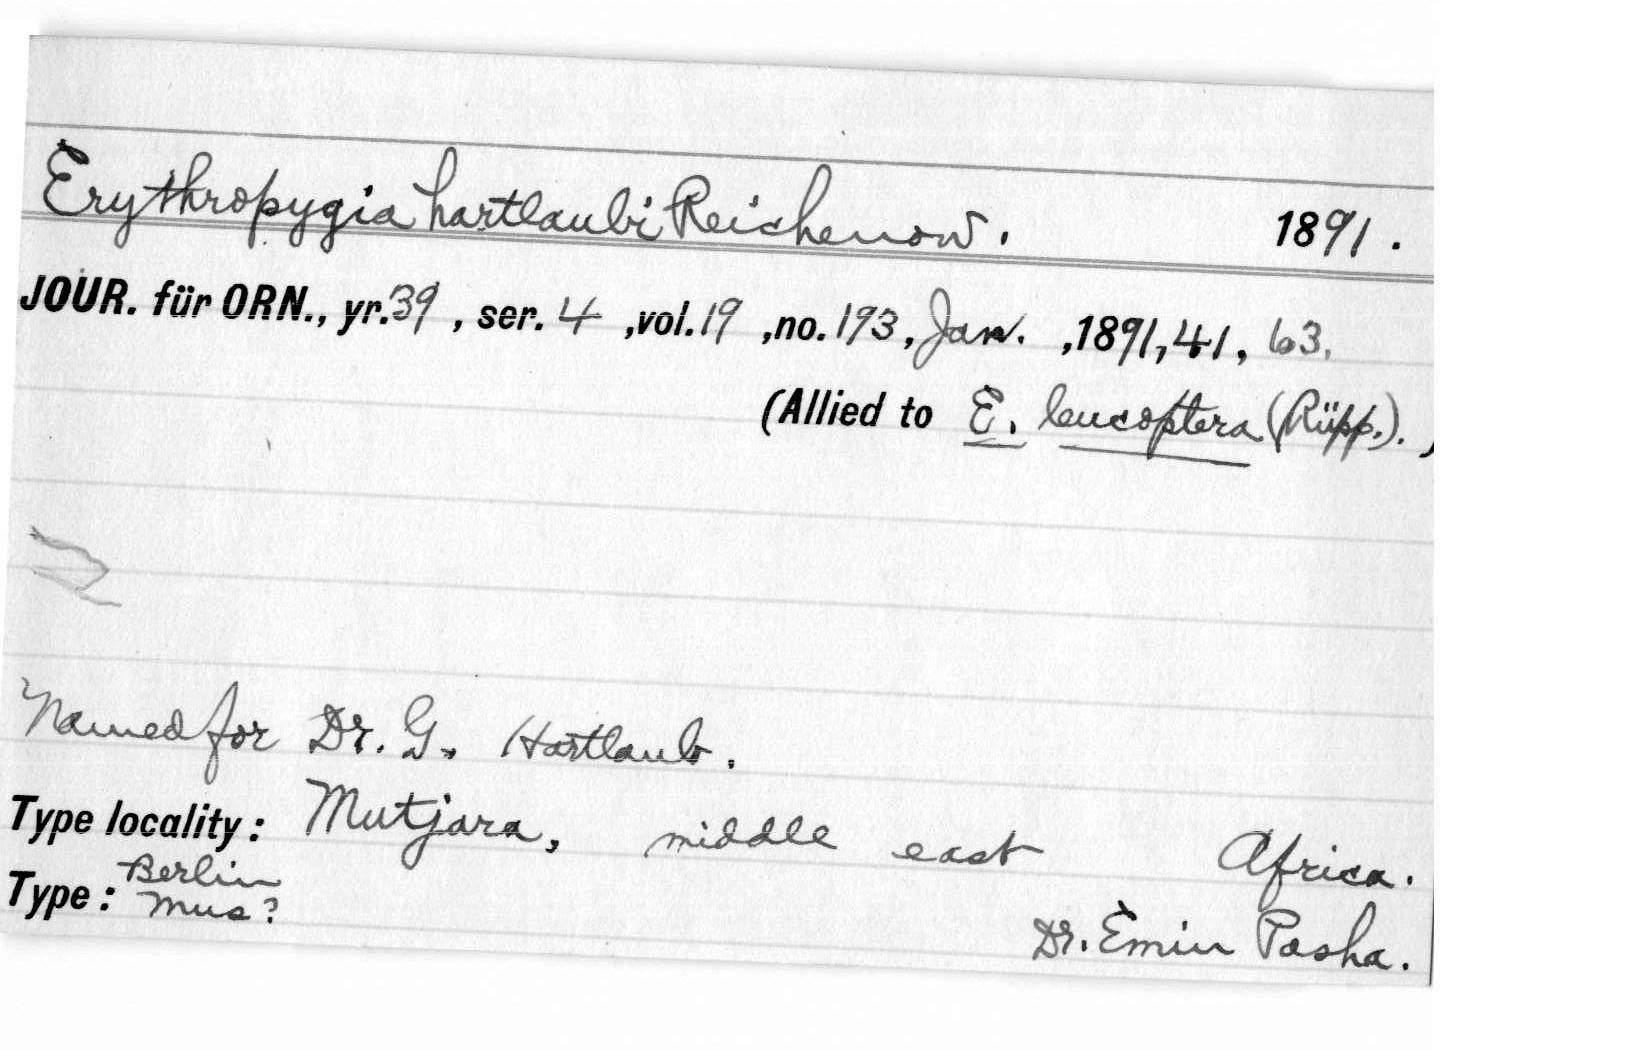 Erythropygia hartlaubi Reichenow. 1891.
JOUR. für ORN., yr.39, ser. 4, vol.19, no.193, Jan. ,1891, 41, 63.
(Allied to E. leucoptera (Rüpp.). )
Named for Dr. G. Hartlaub.
Type locality: Mutjora, middle east Africa.
Type: Berlin Mus?
Dr. Emin Pasha.